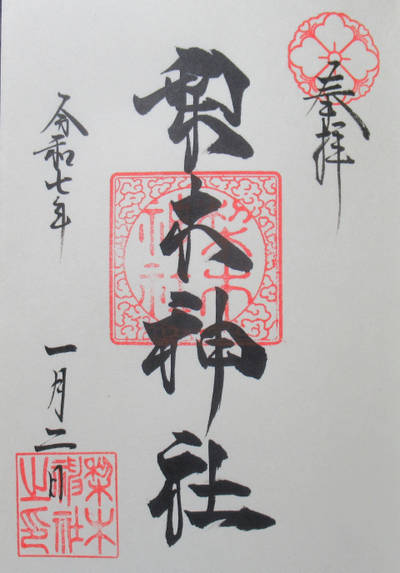 奉拝
梨木神社
梨木
神社
令和七年 一月二日
梨木
神社
之印